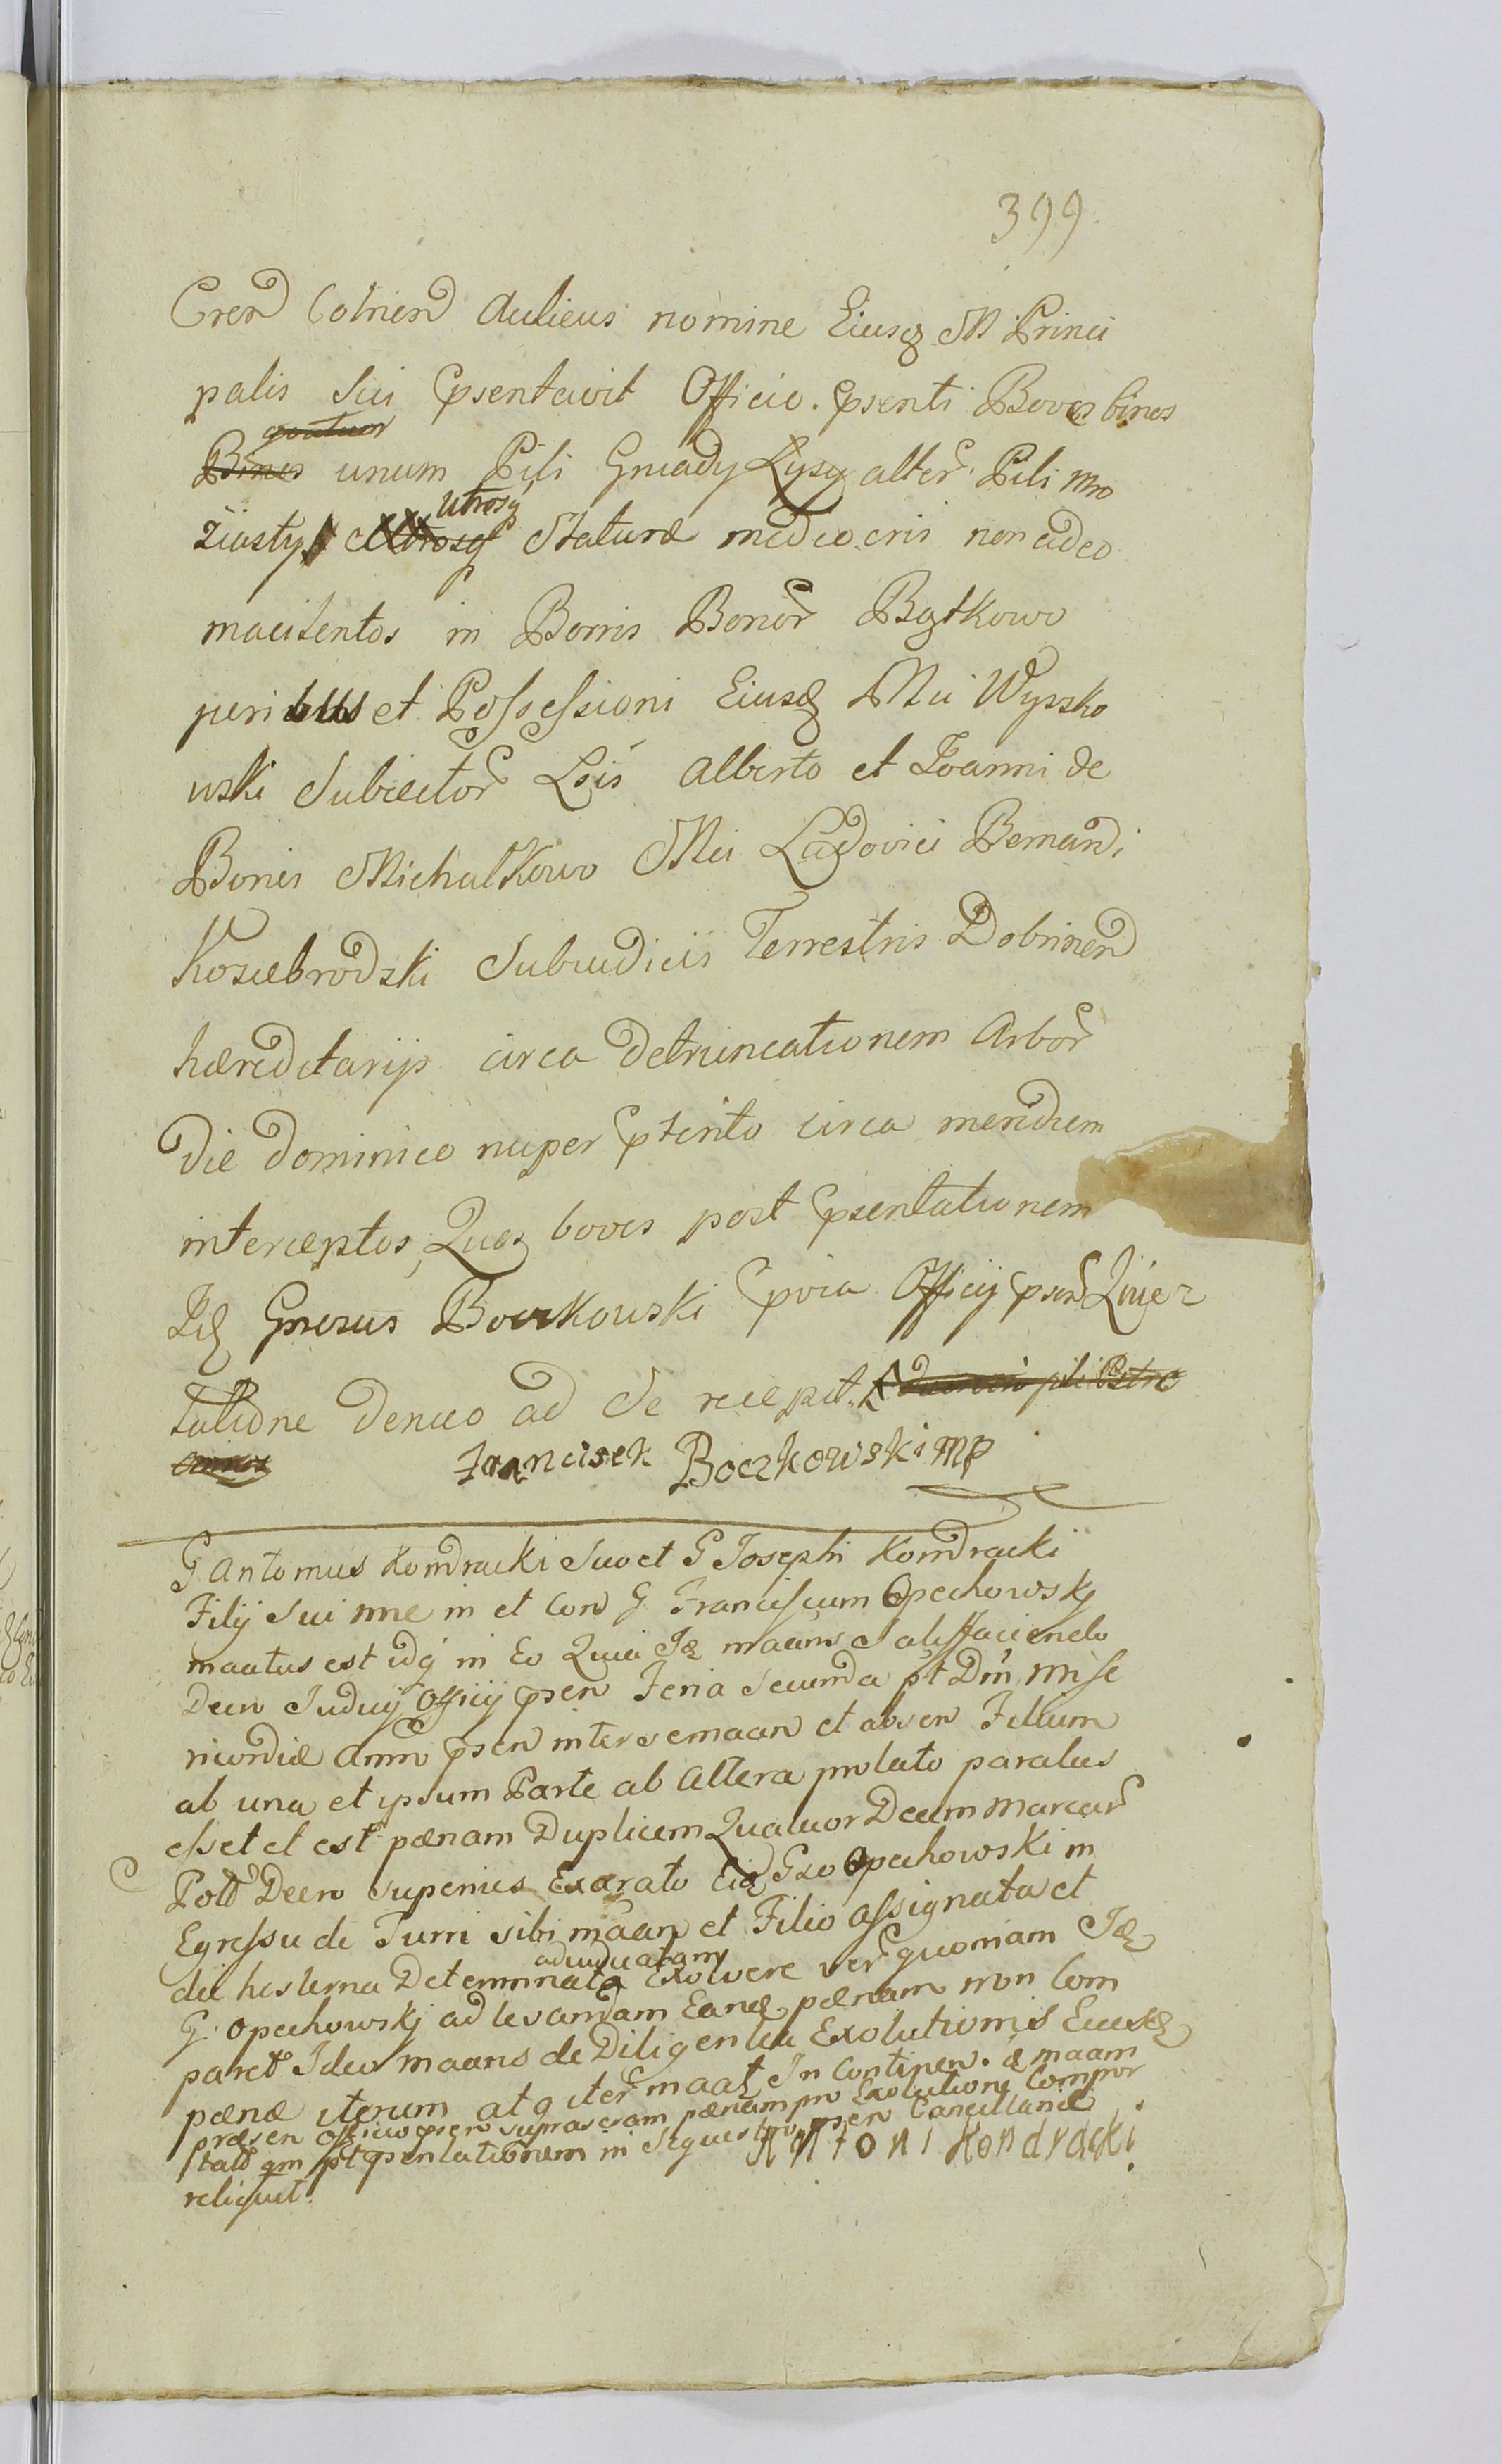 399
Cren Colnen Aulicus nomine Eiusq M Princi
palis Sui psentavit Officio psenti Boves binos
quatuor
Binos unum Pili Gniady Łysy alter Pili Mro
Utrosq
ziasty Utrosq Staturæ mediocris non adeo
macilentos in Borris Bonor Bątkowo
juribus et Possessioni Eiusd Mci Wyszko
wski Subiector Lsis Alberto et Joanni de
Bonis Michałkowo Mci Ludovici Bernardi
Kosiebrodzki Subiudicis Terrestris Dobrinen
hæreditarijs circa Detruncationem Arbor
Die dominico nuper pterito circa meridiem
interceptos, Quos boves post psentationem
Id Gnrosus Boczkowski pvia Officij psen Quie
tatione denuo ad Se recepit.
Francisek Boczkowski mp
G Antonius Kondracki Suo et G Josephi Kondracki
Filij Sui nne in et con G Franciscum Opechowskj
maatus est idq in Eo Quia Id maans Satisfaciendo
Decn Judicij Officij psen Feria Secunda pt Dm Mise
ricordiæ Anno psen inter se maan et absen Filium
ab una et ipsum Parte ab altera prolato paratus
esset et est pænam Duplicem Quatuor Decem Marcar
Pott Decro superius Exarato Eid Gso Opechowski in
Egressu de Turri sibi maan et Filio assignata et
adiudicatam
die hesterna Determinata Exolvere ver quoniam Id
G Opechowskj ad levandam Eand pænam non com
paret Ideo maans de Diligentia Exolutionis Eiusd
pænæ iterum atq iter maat In continen. d maam
præsen Officio psen suprascram pænam pro Exolutione Compor
tatt qm pt psentationem in Sequestro psen Cancellariæ
Antoni Kondracki
reliquit.